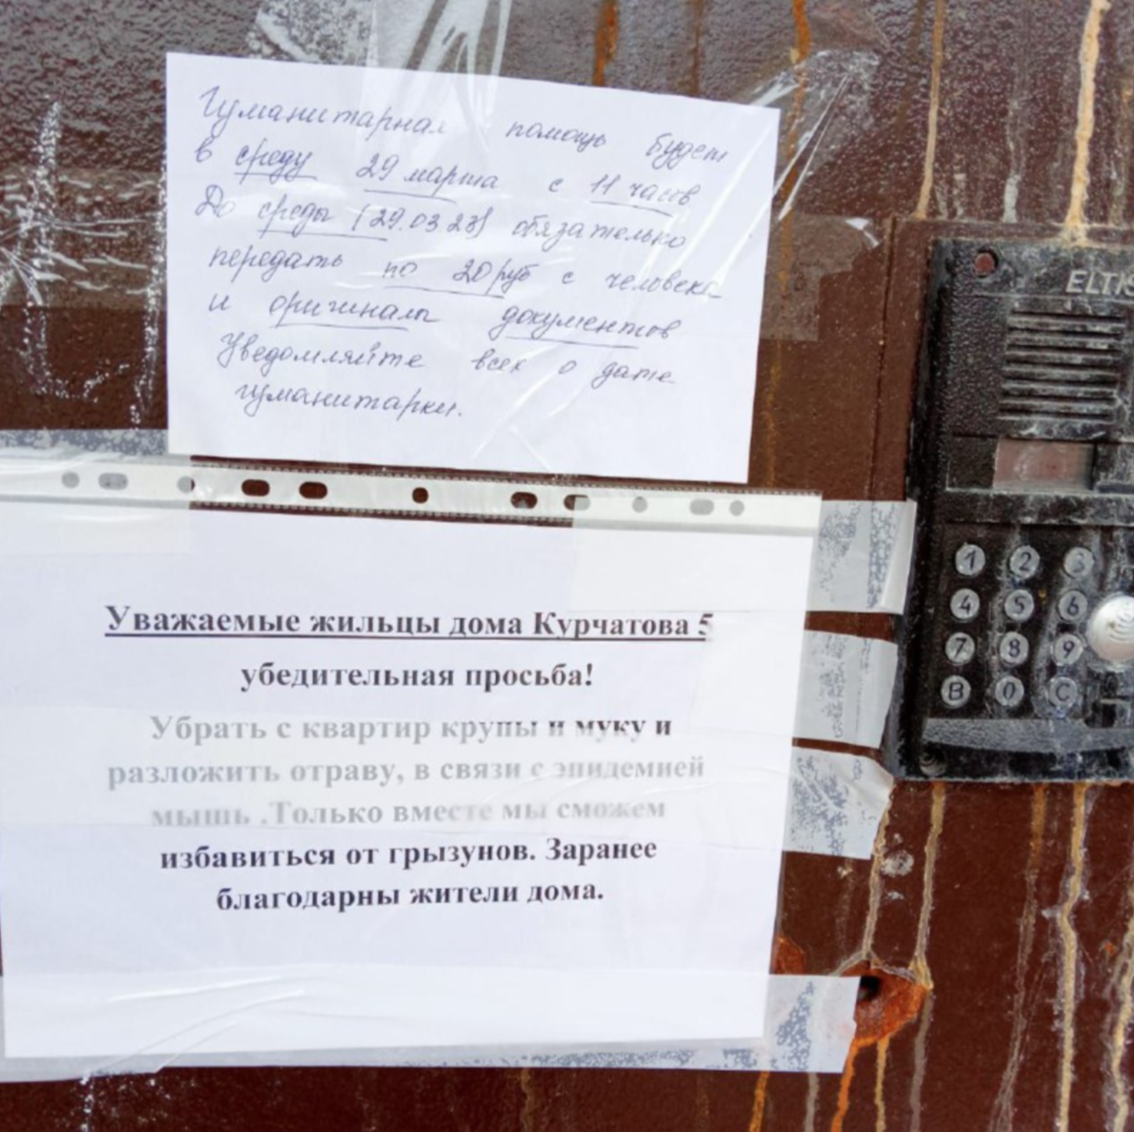 Гуманитарная помощь будет
в среду 29 марта с 11 часов
До среды (29.03.23) обязательно
передать по 20 руб с человека
и оригиналы документов
Уведомляйте всех о дате
гуманитарки.
ELTIS
Уважаемые жильцы дома Курчатова 5
убедительная просьба!
Убрать с квартир крупы и муку и
разложить отраву, в связи с эпидемией
мышь .Только вместе мы сможем
избавиться от грызунов. Заранее
благодарны жители дома.
1 2 3
4 5 6
7 8 9
B 0 C